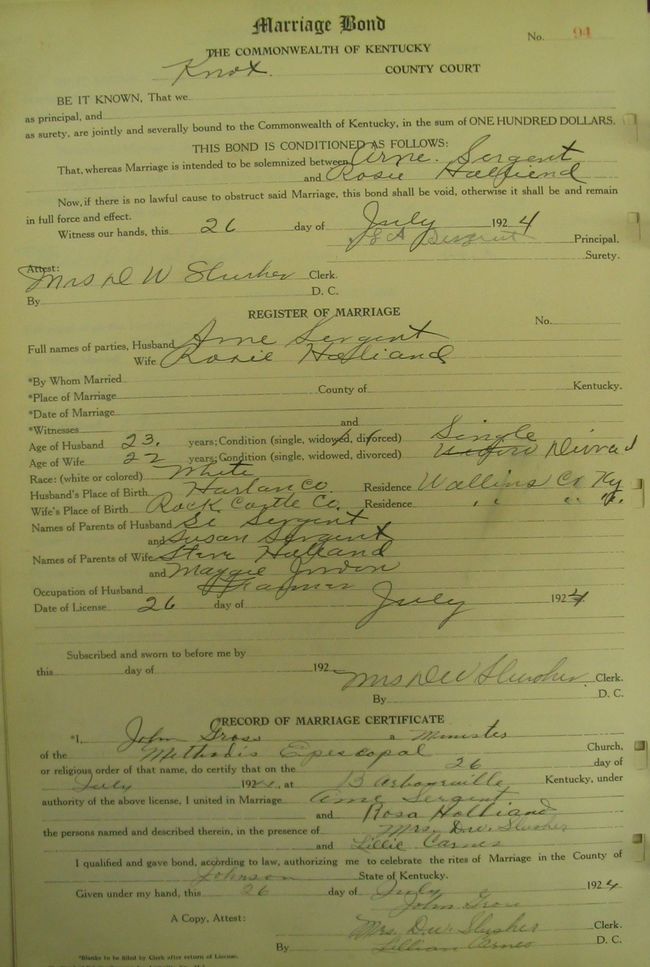 Marriage Bond
No. 94
THE COMMONWEALTH OF KENTUCKY
Knox COUNTY COURT
BE IT KNOWN, That we
as principal, and
as surety, are jointly and severally bound to the Commonwealth of Kentucky, in the sum of ONE HUNDRED DOLLARS.
THIS BOND IS CONDITIONED AS FOLLOWS:
That, whereas Marriage is intended to be solemnized between Arne. Sergent
and Rosie
Now, if there is no lawful cause to obstruct said Marriage, this bond shall be void, otherwise it shall be and remain
in full force and effect.
Witness our hands, this 26 day of July 1924
Sergent Principal.
Surety.
Attest:
Mrs D W Slusher Clerk.
By D. C.
REGISTER OF MARRIAGE
No.
Full names of parties, Husband Arne Sergent
Wife Rosie Holliand
*By Whom Married
*Place of Marriage County of Kentucky.
*Date of Marriage
*Witnesses and
Age of Husband 23. years; Condition (single, widowed, divorced) Single
Age of Wife 22 years; Condition (single, widowed, divorced)
Race: (white or colored) White
Husband's Place of Birth Harlan Co Residence Wallins Cr Ky
Wife's Place of Birth Rock Castle Co. Residence " " "
Names of Parents of Husband Si Sergent
and Susan Sergent
Names of Parents of Wife Steve Holland
and Maggie Jordon
Occupation of Husband Farmer
Date of License 26 day of July 1924
Subscribed and sworn to before me by
this day of 192
Mrs D W Slusher Clerk.
By D. C.
RECORD OF MARRIAGE CERTIFICATE
*I, John Gross a Minister
of the Methodis Episcopal Church,
or religious order of that name, do certify that on the 26 day of
July 1924, at Barbourville Kentucky, under
authority of the above license, I united in Marriage Arne Sergent
and Rosa Holliand
the persons named and described therein, in the presence of Mrs. D.W. Slusher
and Lillie Carnes
I qualified and gave bond, according to law, authorizing me to celebrate the rites of Marriage in the County of
Johnson State of Kentucky.
Given under my hand, this 26 day of July 1924
John Gross
A Copy, Attest: Mrs. D.W. Slusher Clerk.
By Lillian Carnes D. C.
*Blanks to be filled by Clerk after return of License.